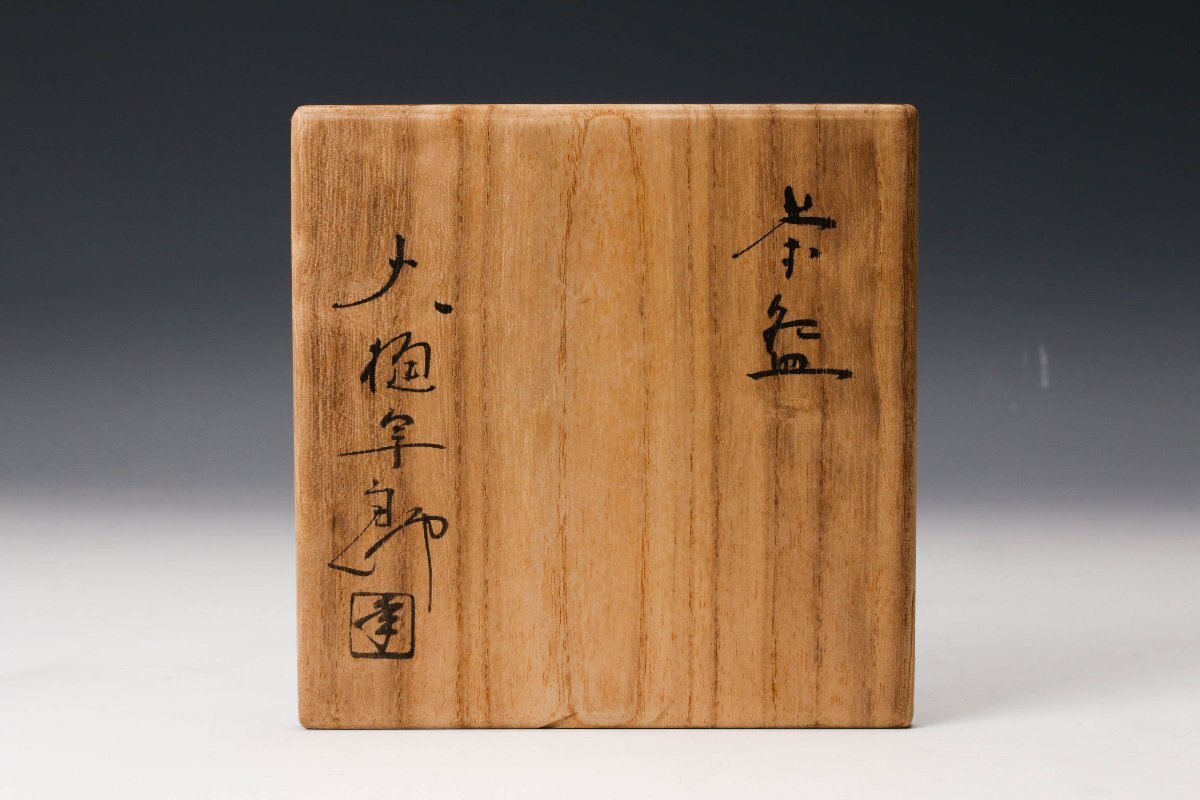 茶盌
大樋年郎